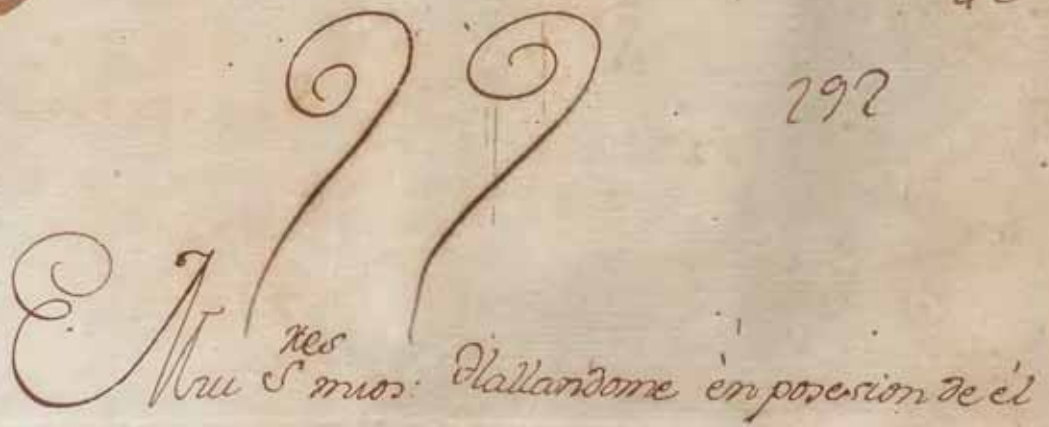 292
Mui S.res mios: Hallandome èn posesion de él